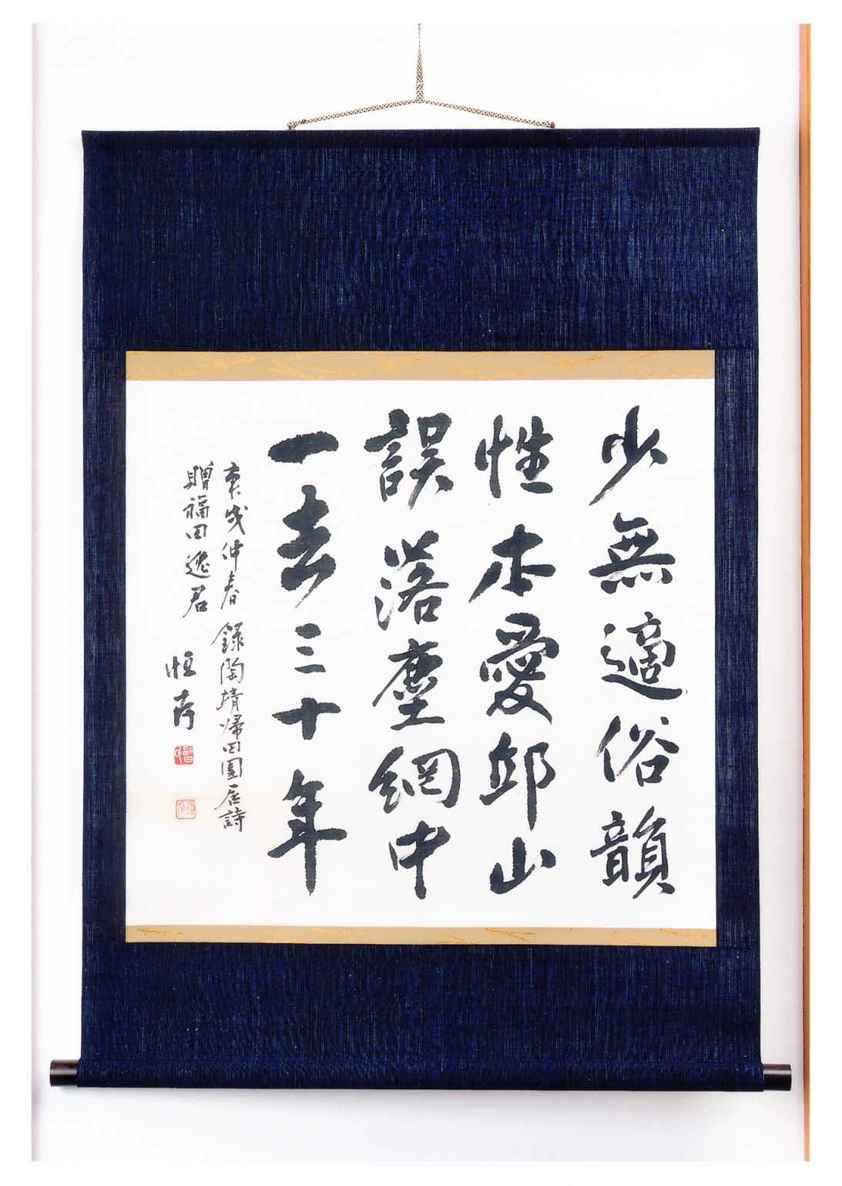 少無適俗韻
性本愛邱山
誤落塵網中
一去三十年
庚戌仲春 錄陶靖歸田園居詩
贈福田逸君 恒存